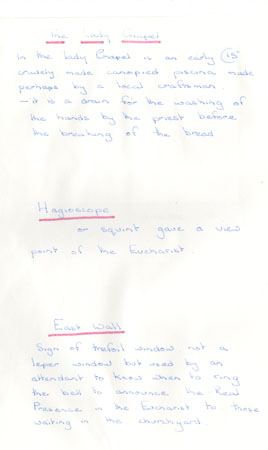 The Lady Chapel
In the Lady Chapel is an early 15°
crudely made canopied piscina made
perhaps by a local craftsman.
- it is a drain for the washing of
the hands by the priest before
the breaking of the bread
Hagioscope
or squint gave a view
point of the Eucharist.
East Wall
Sign of trefoil window not a
leper window but used by an
attendant to know when to ring
the bell to announce the Real
Presence in the Eucharist to those
waiting in the churchyard.